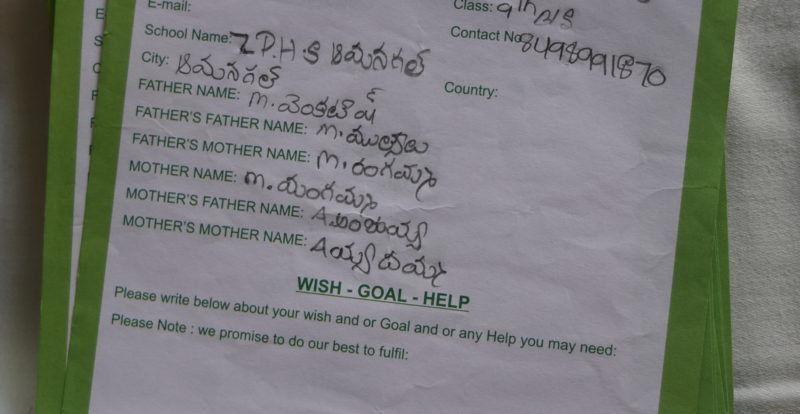 E-mail:
Class: 9th
School Name: Z.P.H.S ఆమనగల్
Contact No 8498991870
City: ఆమనగల్
Country:
FATHER NAME: M. వెంకటేష్
FATHER'S FATHER NAME: M.
FATHER'S MOTHER NAME: M. రంగమ్మ
MOTHER NAME: M. యంగమ్మ
MOTHER'S FATHER NAME: A
MOTHER'S MOTHER NAME: A
WISH - GOAL - HELP
Please write below about your wish and or Goal and or any Help you may need:
Please Note : we promise to do our best to fulfil: